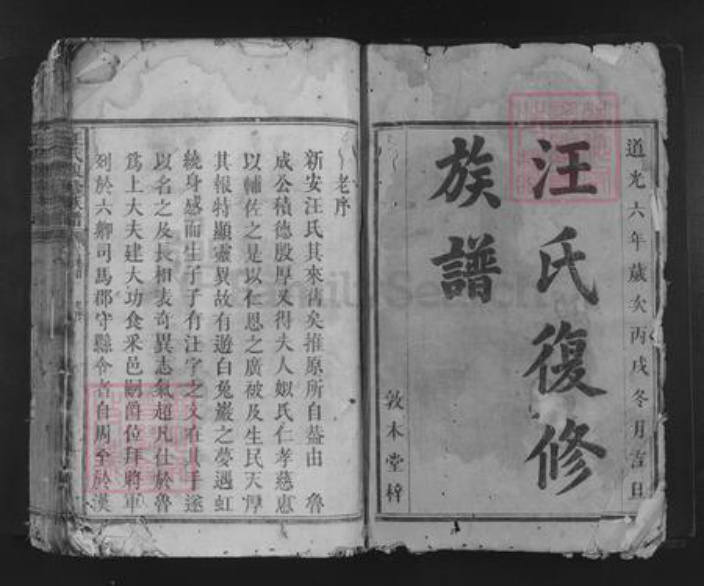 道光六年歲次丙戌冬月吉旦
汪氏復修
族譜
敦本堂梓
老序
新安汪氏其來尚矣推原所自葢由 魯
成公積德殷厚又得夫人姒氏仁孝慈惠
以輔佐之是以仁恩之廣被及生民天厚
其報特顯靈異故有遊白兔巖之夢遇虹
繞身感而生子子有汪字之文在其手遂
以名之及長相表奇異志氣超凡仕於魯
爲上大夫建大功食采邑嗣爵位拜將軍
列於六卿司馬郡守縣令者自周至於漢
FamilySearch